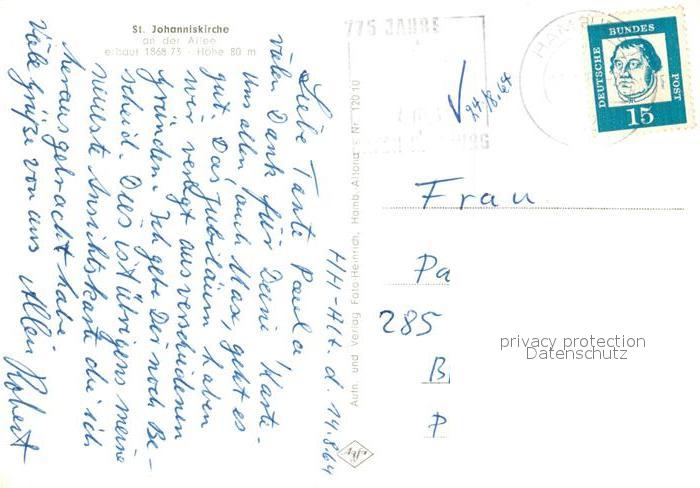 St. Johanniskirche
an der Allee
erbaut 1868-73 - Höhe 80 m
HH-Alt. d. 14.8.64
Liebe Tante Paula,
vielen Dank für Deine Karte.
Uns allen, auch Max, geht es
gut. Das Jubiläum haben
wir verlegt aus verschiedenen
Gründen. Ich gebe Dir noch Be-
scheid. Dies ist übrigens meine
neueste Ansichtskarte die ich
herausgebracht habe
Viele Grüße von uns Allen Robert
Autn. und Verlag Foto-Heinrich, Hamb. Altona Nr. 12010
Agfa
775 JAHRE
HAMBU
DEUTSCHE BUNDES POST
15
24/8.64
Frau
Pa
285
B
P
privacy protection
Datenschutz